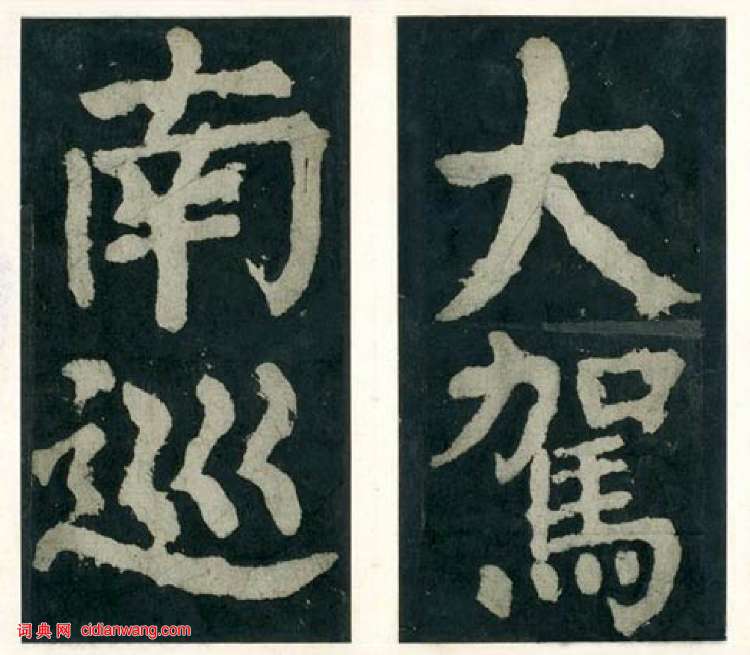 大駕
南巡
词典网 cidianwang.com